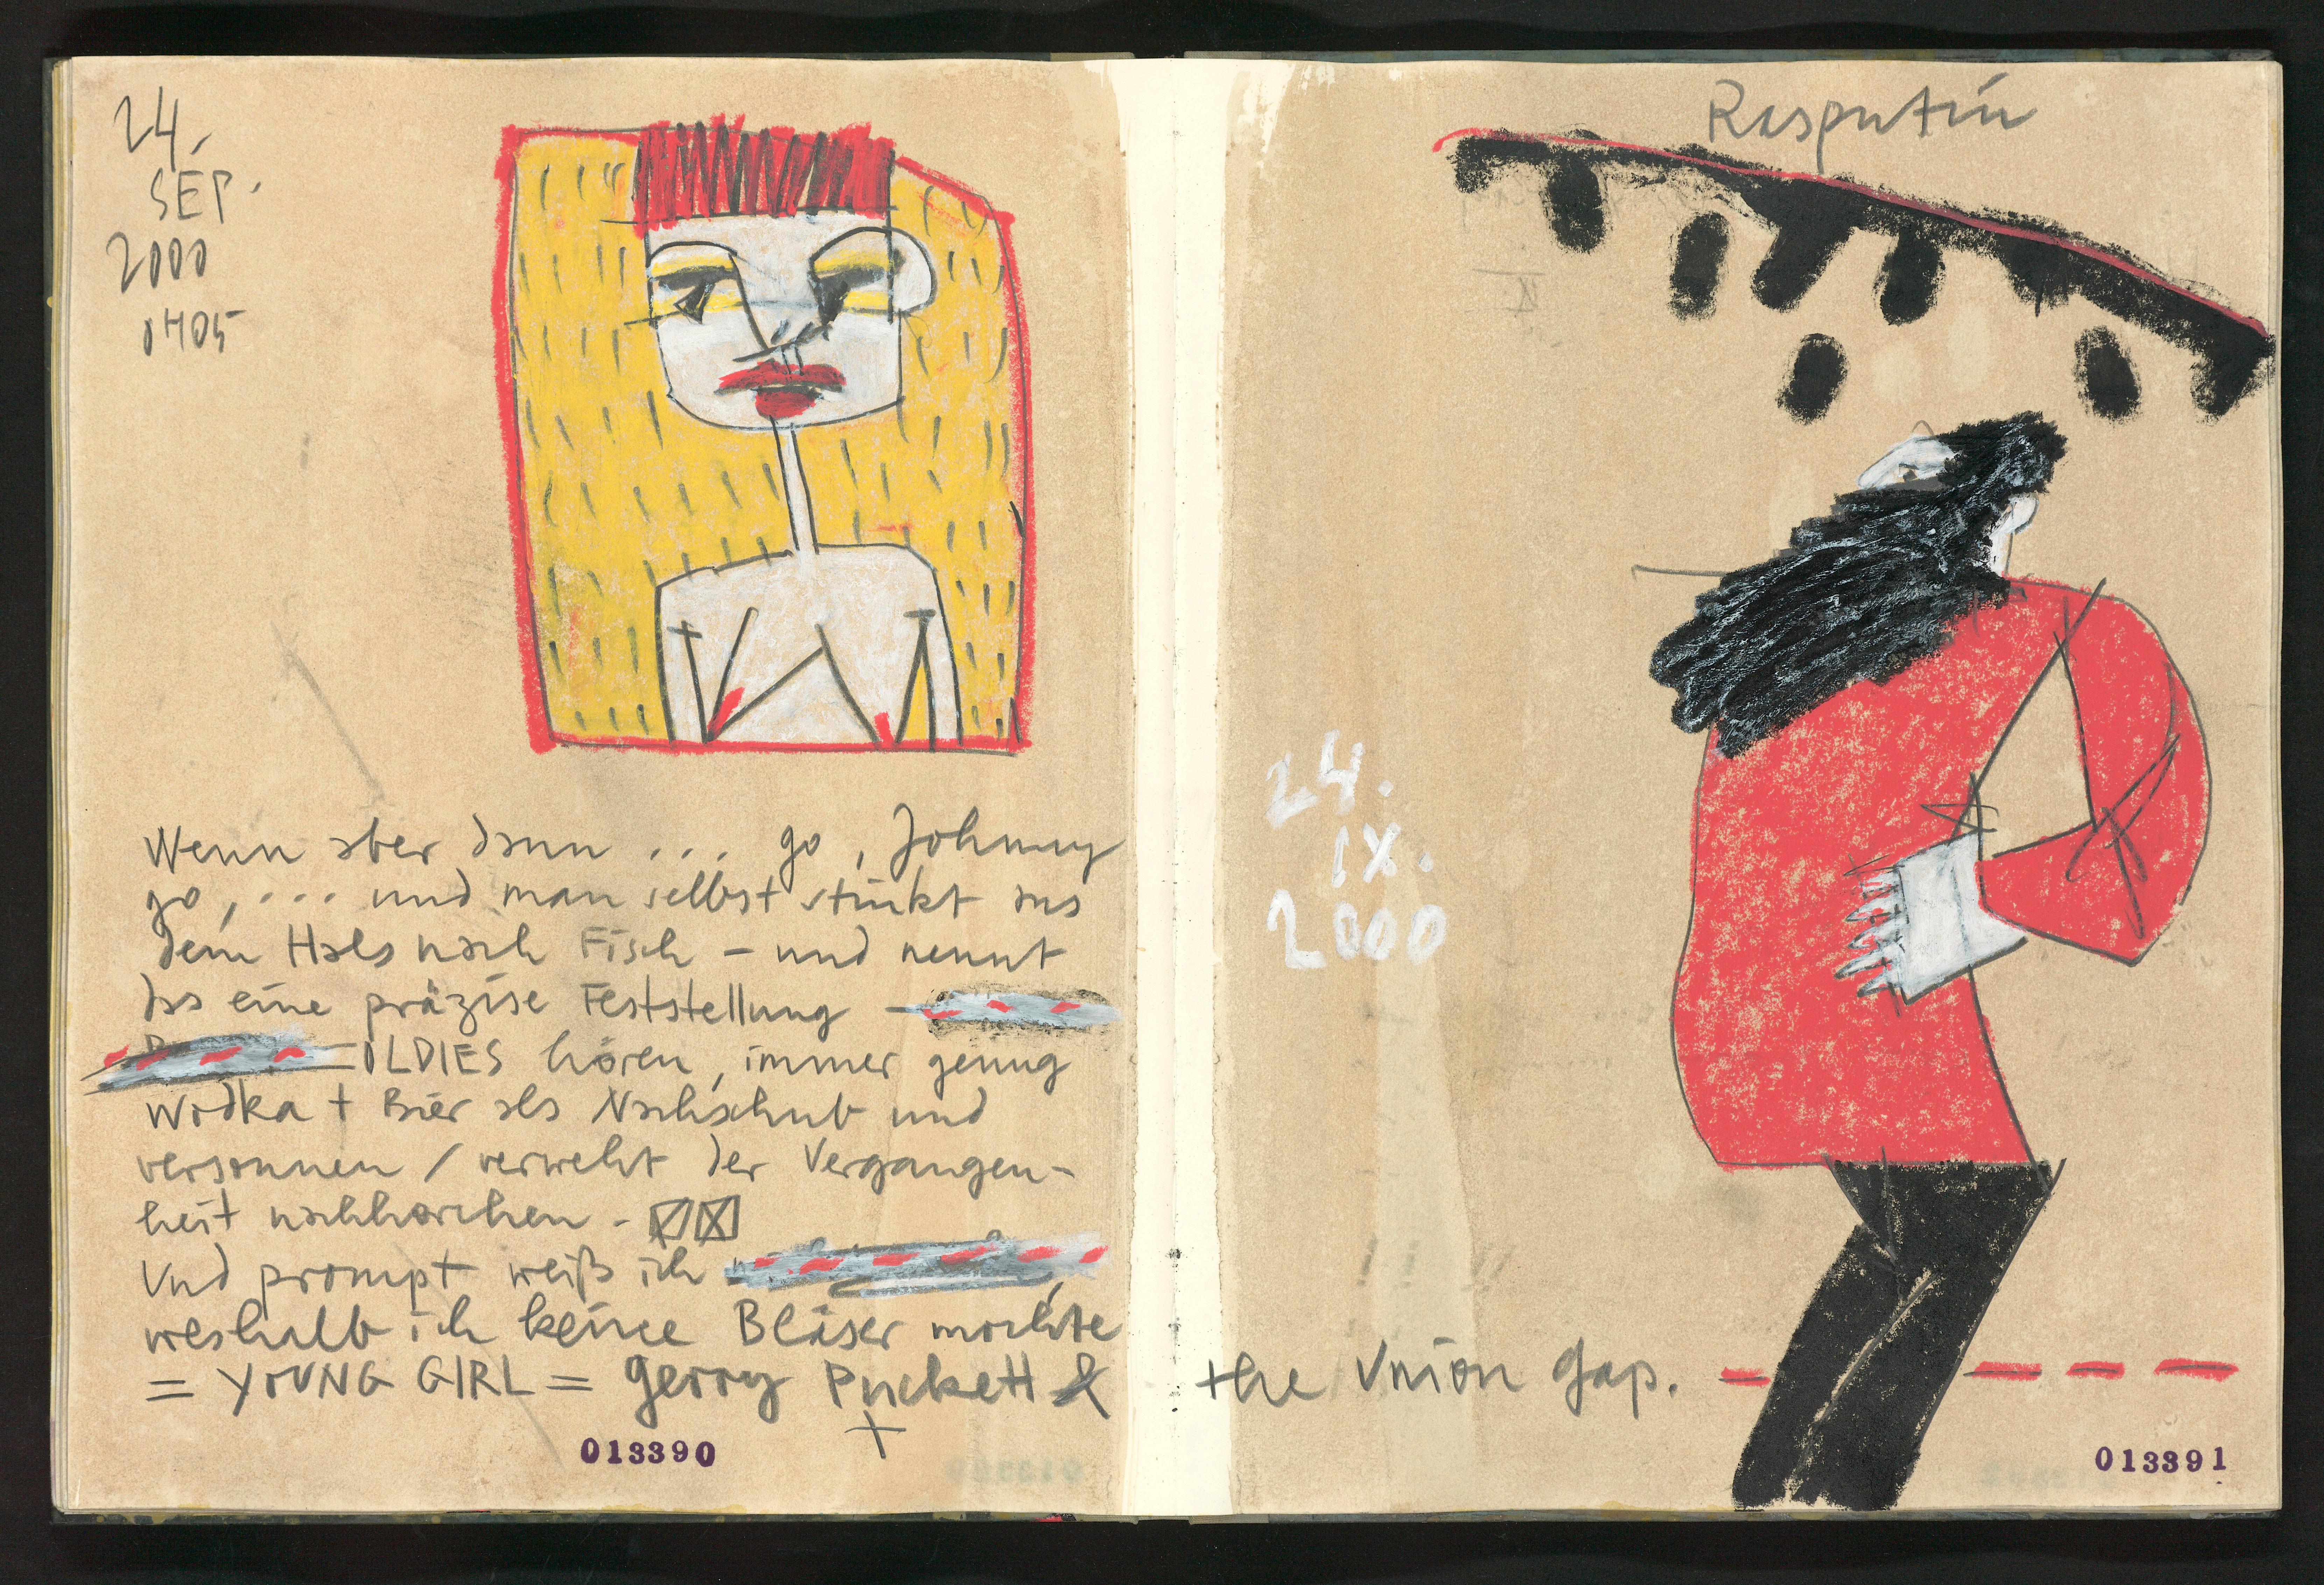 24.
SEP.
2000
0405
Wenn aber dann ... go, Johnny
go, ... und man selbst stinkt aus
dem Hals nach Fisch – und nennt
das eine präzise Feststellung –
OLDIES hören, immer genug
Wodka + Bier als Nachschub und
versonnen / verweht der Vergangen-
heit nachhorchen -
Und prompt weiß ich
weshalb ich keine Bläser mochte
= YOUNG GIRL = Gerry Puckett & the Union Gap.
013390
Rasputin
24.
IX.
2000
013391